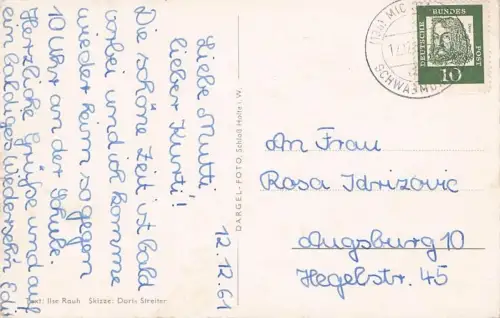 12.12.61
Liebe Mutti
lieber Kurti!
Die schöne Zeit ist bald
vorbei und ich komme
wieder heim so gegen
10 Uhr an der Schule.
Herzliche Grüße und auf
ein baldiges Wiedersehn Edi
Text: Ilse Rauh Skizze: Doris Streiter
DARGEL-FOTO, Schloß Holte i. W.
DEUTSCHE BUNDES POST
10
An Frau
Rosa Idrizovic
Augsburg 10
Hegelstr. 45